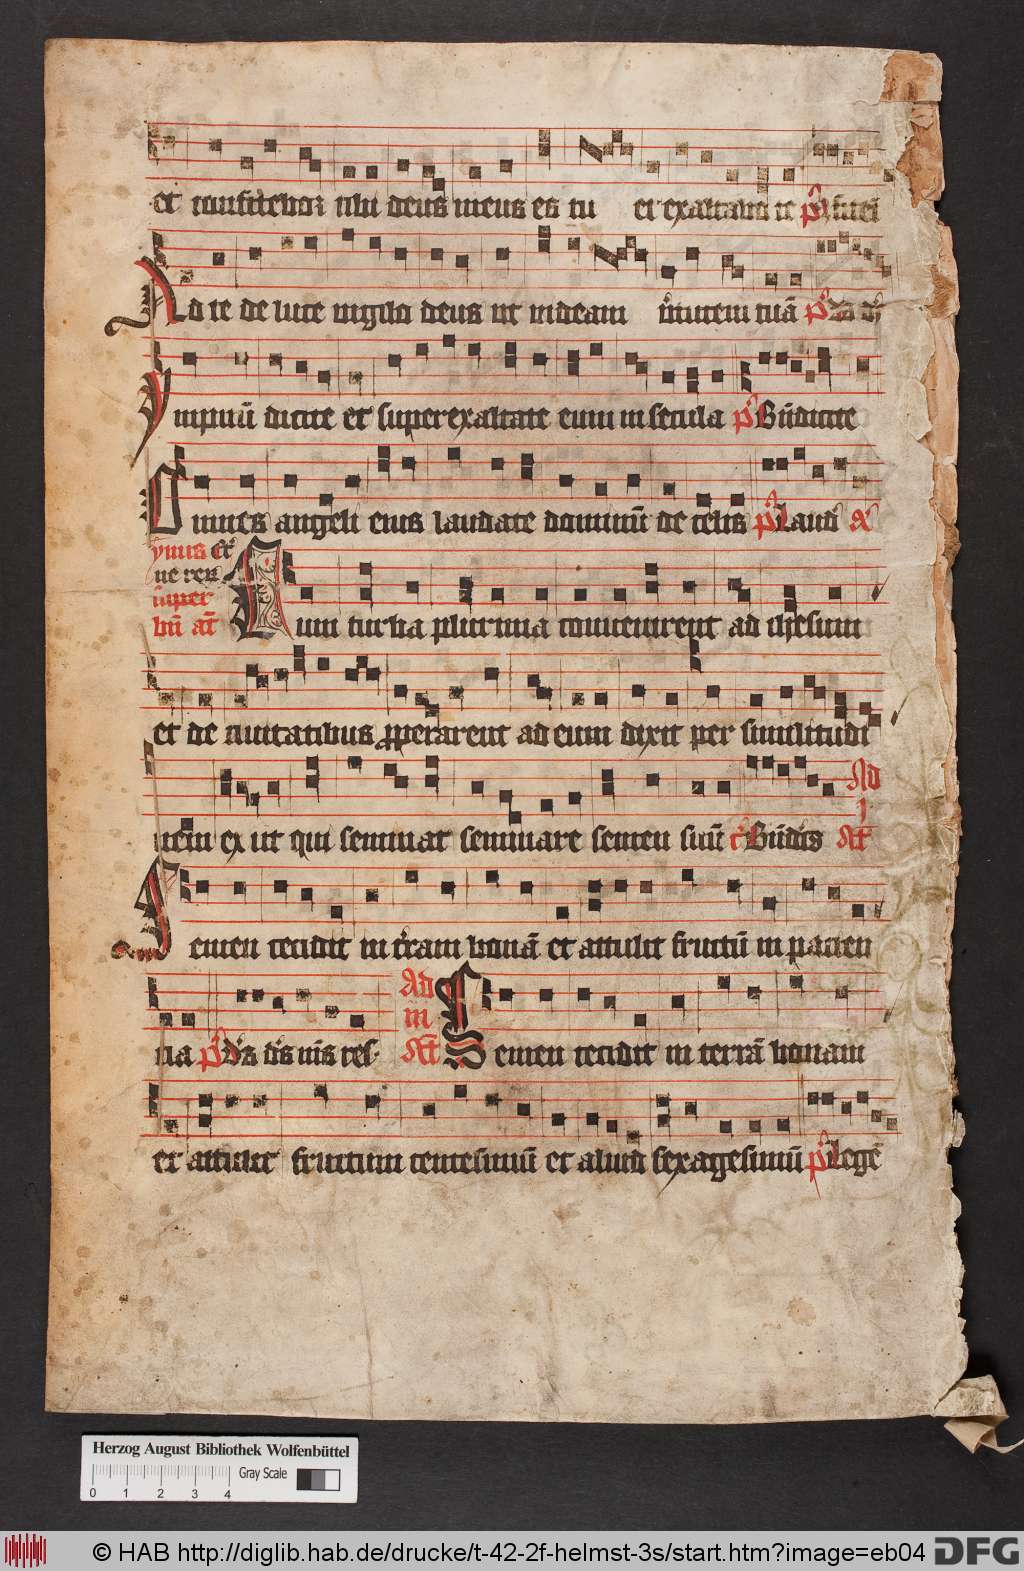 et confitebor tibi deus meus es tu et exaltabo te
Ad te de luce vigilo deus ut videam virtutem tuā
ympnū dicite et superexaltate eum in secula Bn̄dicite
Omnes angeli eius laudate dominū de celis Laud
Cum turba plurima convenirent ad ihesum
et de civitatibus properarent ad eum dixit per similitudi
nem exiit qui seminat seminare semen suū Bn̄dcs
Semen cecidit in terram bonā et attulit fructū in pacien
cia
Ad
in
Semen cecidit in terrā bonam
et attulit fructum centesimū et aliud sexagesimū
Herzog August Bibliothek Wolfenbüttel
Gray Scale
0 1 2 3 4
© HAB http://diglib.hab.de/drucke/t-42-2f-helmst-3s/start.htm?image=eb04 DFG